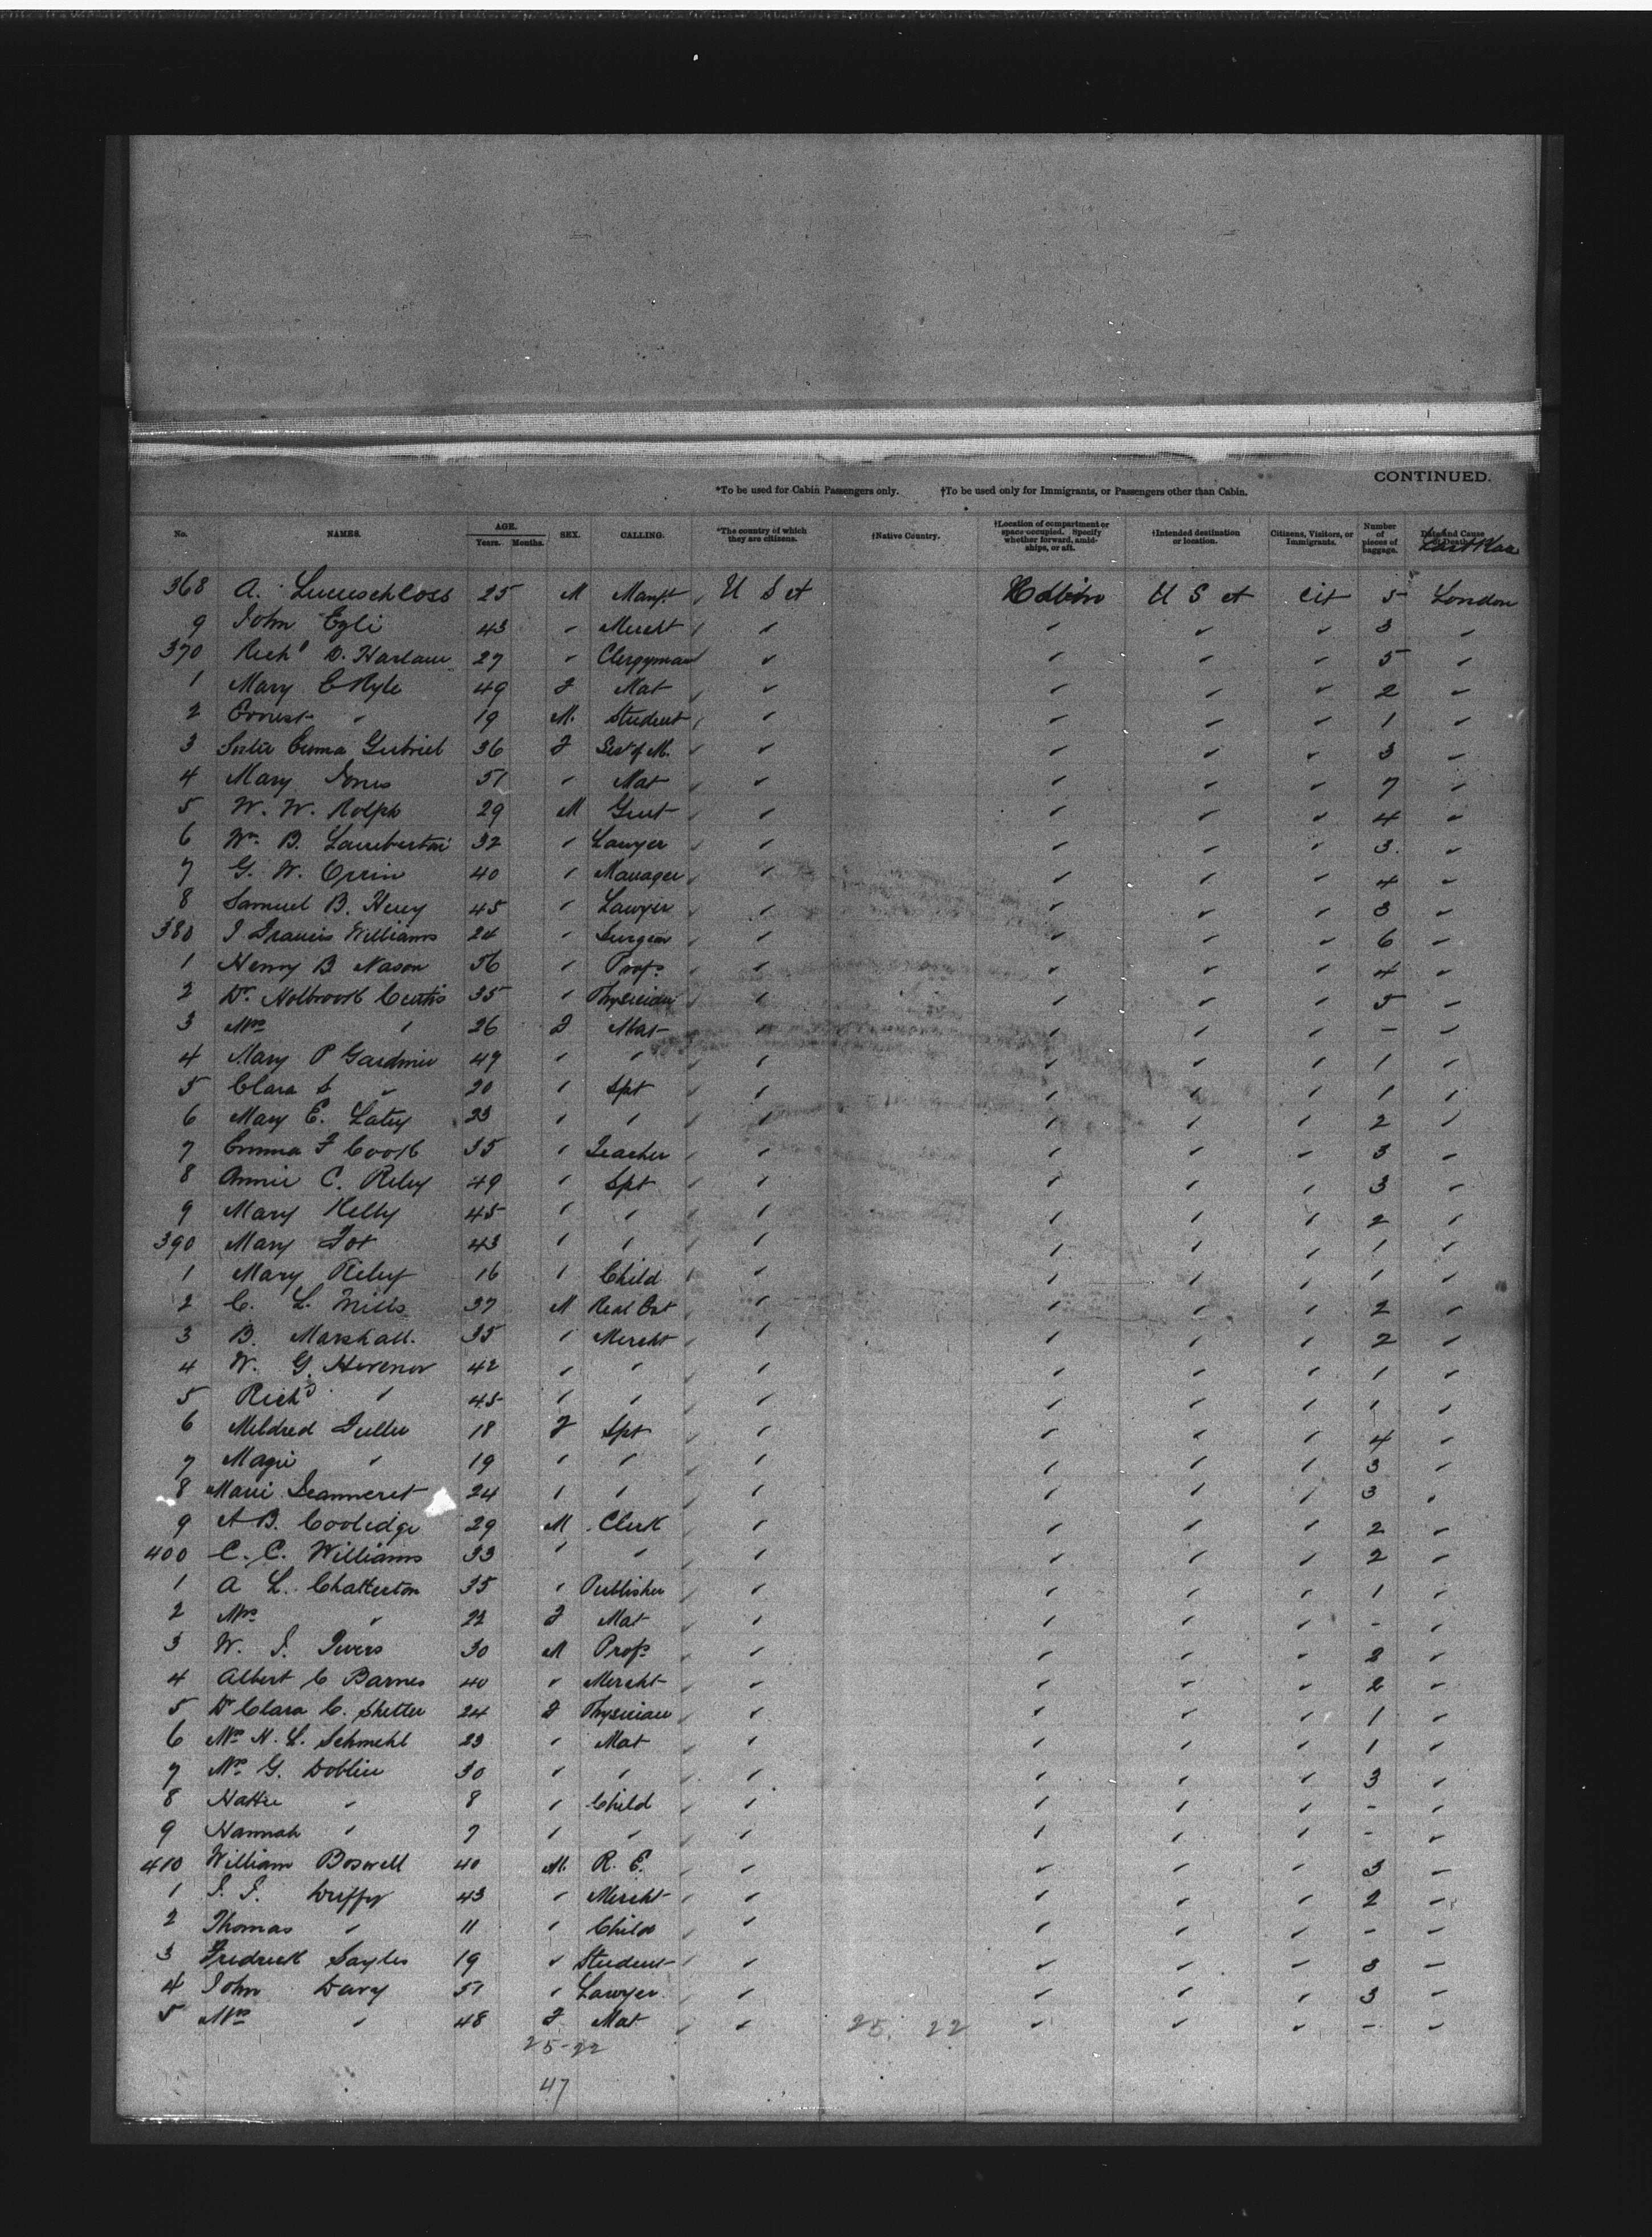 CONTINUED.
*To be used for Cabin Passengers only. †To be used only for Immigrants, or Passengers other than Cabin.
No. NAMES. AGE. Years. Months. SEX. CALLING. *The country of which they are citizens. †Native Country. †Location of compartment or space occupied. Specify whether forward, amidships, or aft. †Intended destination or location. Citizens, Visitors, or Immigrants. Number of pieces of baggage. Date and Cause of Death.
368 A. 25 M U S A U S A Cit 5 London
9 John Egli 43 " Mercht " " " " 3 "
370 Richd D. Harlan 27 " Clergyman " " " " 5 "
1 Mary C Ryle 49 F Mat " " " " 2 "
2 Ernest " 19 M. Student " " " " 1 "
3 Emma Gabriel 36 F Sist of M. " " " " 3 "
4 Mary Jones 51 " Mat " " " " 7 "
5 W. W. Rolph 29 M Gent " " " " 4 "
6 Wm B. Lamberton 32 " Lawyer " " " " 3. "
7 G. W. Orrin 40 " Manager " " " " 4 "
8 Samuel B. Huey 45 " Lawyer " " " " 3 "
380 J Francis Williams 24 " Surgeon " " " " 6 "
1 Henry B Nason 56 " Profr " " " " 4 "
2 Dr. Holbrook Curtis 35 " Physician " " " " 5 "
3 Mrs " 26 F Mat " " " " - "
4 Mary P Gardner 49 " " " " " " 1 "
5 Clara S " 20 " Spt " " " " 1 "
6 Mary E. 23 " " " " " " 2 "
7 Emma F Cook 35 " Teacher " " " " 3 "
8 Annie C. Riley 49 " Spt " " " " 3 "
9 Mary Kelly 45 " " " " " " 2 "
390 Mary Fox 43 " " " " " " 1 "
1 Mary Riley 16 " Child " " " " 1 "
2 C. L. Mills 37 M Real Est " " " " 2 "
3 B. Marshall. 35 " Mercht " " " " 2 "
4 W. G. Hevenor 42 " " " " " " 1 "
5 Richd " 45 " " " " " " 1 "
6 Mildred Fuller 18 F Spt " " " " 4 "
7 Magie " 19 " " " " " " 3 "
8 Marie Jeanneret 24 " " " " " " 3 "
9 A B. Coolidge 29 M Clerk " " " " 2 "
400 C. C. Williams 33 " " " " " " 2 "
1 A L. Chatterton 35 " Publisher " " " " 1 "
2 Mrs " 22 F Mat " " " " - "
3 W. J. 30 M Profr " " " " 2 "
4 Albert C Barnes 40 " Mercht " " " " 2 "
5 Dr Clara C. 24 F Physician " " " " 1 "
6 Mrs H. L. Schmehl 23 " Mat " " " " 1 "
7 Mrs G. Doblin 30 " " " " " " 3 "
8 Hattie " 8 " Child " " " " - "
9 Hannah " 7 " " " " " " - "
410 William Boswell 40 M. R. E. " " " " 3 "
1 J. J. Duffy 43 " Mercht " " " " 2 "
2 Thomas " 11 " Child " " " " - "
3 Fredrick Sayles 19 " Student " " " " 3 "
4 John Davy 51 " Lawyer " " " " 3 "
5 Mrs " 48 F Mat " 25. 22 " " " - "
25-22
47